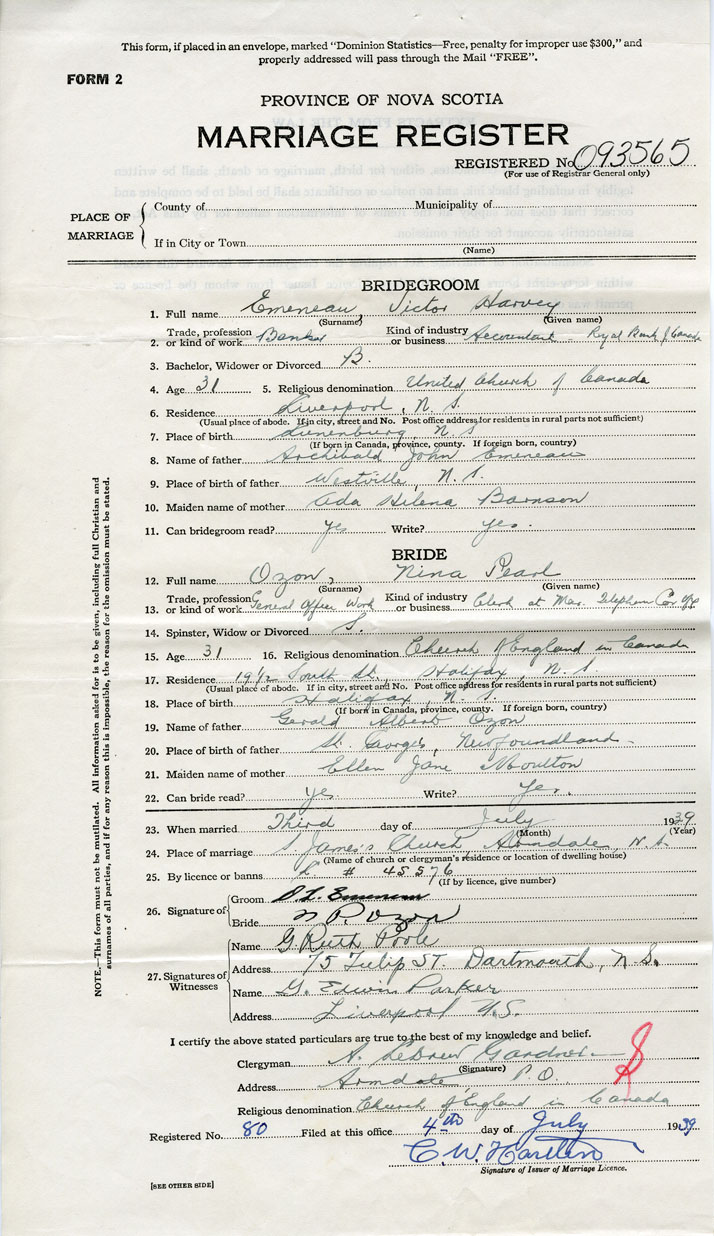 This form, if placed in an envelope, marked "Dominion Statistics—Free, penalty for improper use $300," and
properly addressed will pass through the Mail "FREE".
FORM 2
PROVINCE OF NOVA SCOTIA
MARRIAGE REGISTER
REGISTERED No. 093565
(For use of Registrar General only)
PLACE OF MARRIAGE
County of Municipality of
If in City or Town
(Name)
BRIDEGROOM
1. Full name Emeneau, Victor Harvey
(Surname) (Given name)
2. Trade, profession or kind of work Banker Kind of industry or business Accountant - Royal Bank of Canada
3. Bachelor, Widower or Divorced B.
4. Age 31 5. Religious denomination United Church of Canada
6. Residence Liverpool, N. S.
(Usual place of abode. If in city, street and No. Post office address for residents in rural parts not sufficient)
7. Place of birth Lunenburg N S
(If born in Canada, province, county. If foreign born, country)
8. Name of father Archibald John Emeneau
9. Place of birth of father Westville, N. S.
10. Maiden name of mother Ada Helena Barnson
11. Can bridegroom read? yes Write? yes.
BRIDE
12. Full name Ozon, Nina Pearl
(Surname) (Given name)
13. Trade, profession or kind of work General Office Work Kind of industry or business Clerk at Mar. Telephone Co.
14. Spinster, Widow or Divorced S.
15. Age 31 16. Religious denomination Church of England in Canada
17. Residence 19½ South St., Halifax, N. S
(Usual place of abode. If in city, street and No. Post office address for residents in rural parts not sufficient)
18. Place of birth Halifax, N. S.
(If born in Canada, province, county. If foreign born, country)
19. Name of father Gerald Albert Ozon
20. Place of birth of father St. Georges, Newfoundland
21. Maiden name of mother Ellen Jane Moulton
22. Can bride read? Yes Write? Yes.
23. When married Third day of July 1939
(Month) (Year)
24. Place of marriage S. James's Church Armdale, N. S.
(Name of church or clergyman's residence or location of dwelling house)
25. By licence or banns L # 45576
(If by licence, give number)
26. Signature of
Groom Emeneau
Bride N P. Ozon
27. Signatures of Witnesses
Name G. Ruth Poole
Address 75 Tulip ST. Dartmouth, N. S.
Name G. Edwin Parker
Address Liverpool N.S.
I certify the above stated particulars are true to the best of my knowledge and belief.
Clergyman A. LeDrew Gardner
(Signature)
Address Armdale P. O.
Religious denomination Church of England in Canada
Registered No. 80 Filed at this office 4th day of July 1939
C. W. Harlin
Signature of Issuer of Marriage Licence.
[SEE OTHER SIDE]
NOTE.—This form must not be mutilated. All information asked for is to be given, including full Christian and
surnames of all parties, and if for any reason this is impossible, the reason for the omission must be stated.